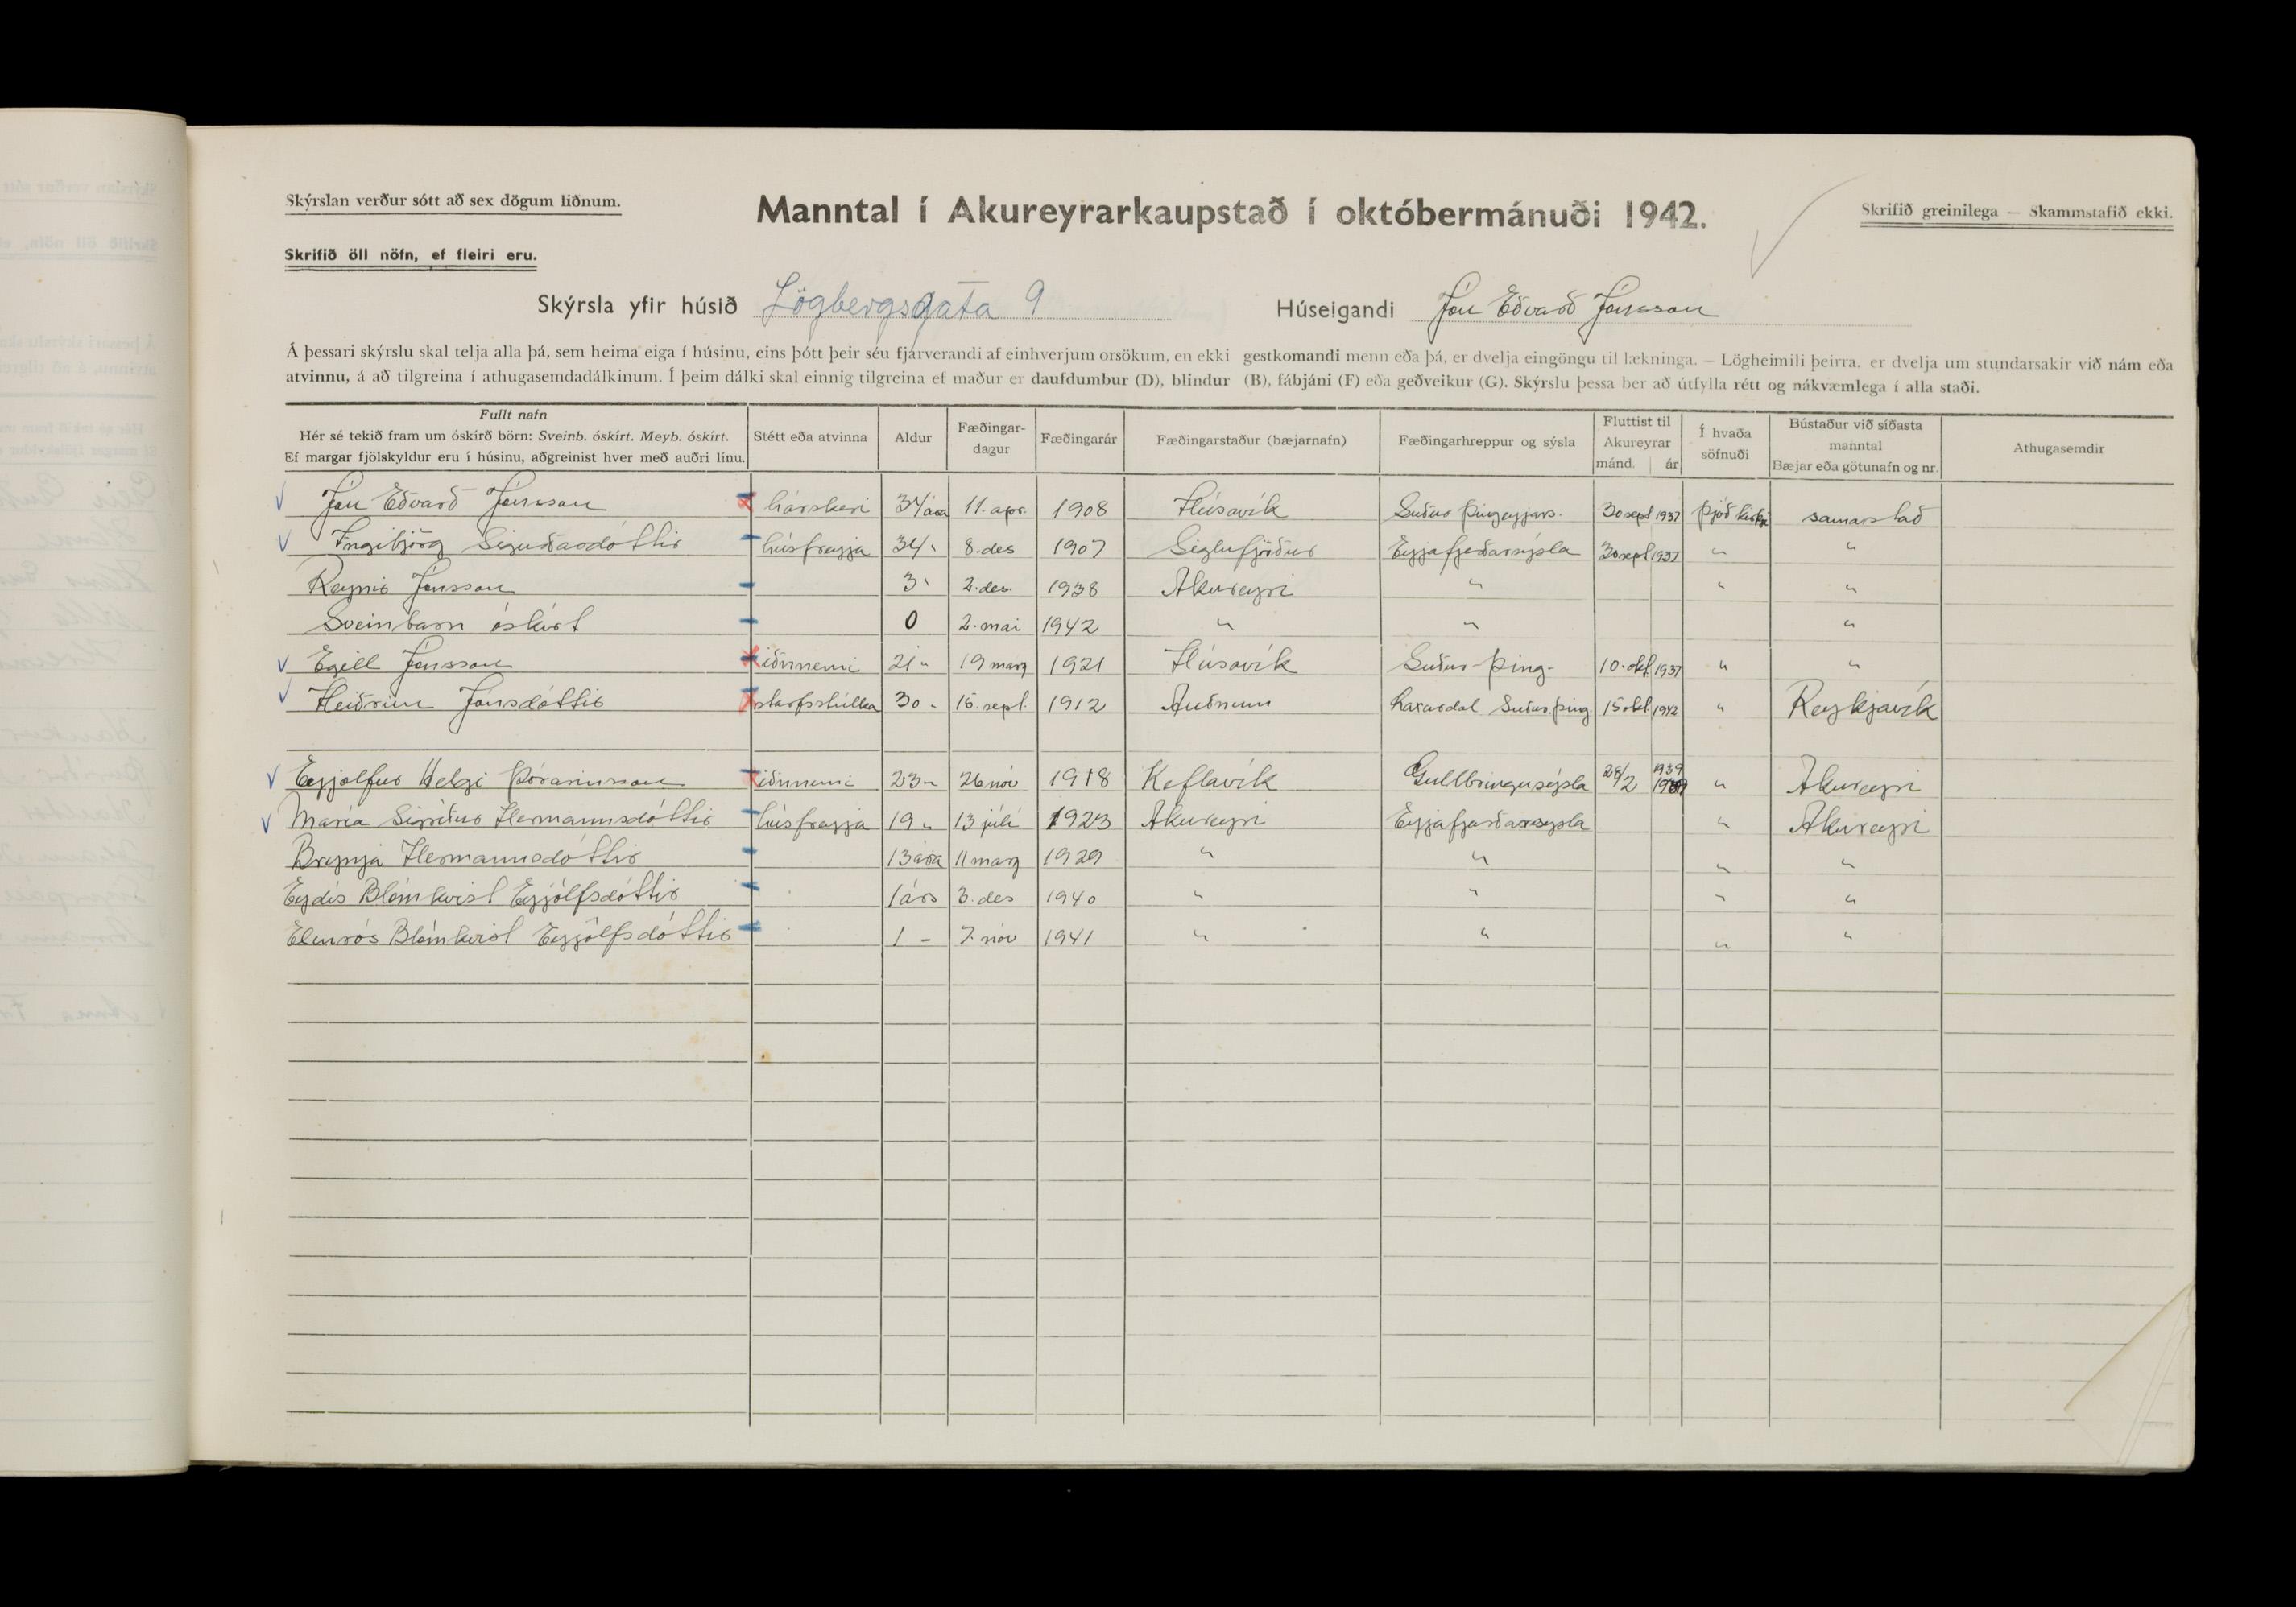 Skýrslan verður sótt að sex dögum liðnum.
Manntal í Akureyrarkaupstað í októbermánuði 1942.
Skrifið greinilega — Skammstafið ekki.
Skrifið öll nöfn, ef fleiri eru.
Skýrsla yfir húsið Lögbergsgata 9 Húseigandi Jón Eðvarð Jónsson
Á þessari skýrslu skal telja alla þá, sem heima eiga í húsinu, eins þótt þeir séu fjárverandi af einhverjum orsökum, en ekki gestkomandi menn eða þá, er dvelja eingöngu til lækninga. — Lögheimili þeirra, er dvelja um stundarsakir við nám eða
atvinnu, á að tilgreina í athugasemdadálkinum. Í þeim dálki skal einnig tilgreina ef maður er daufdumbur (D), blindur (B), fábjáni (F) eða geðveikur (G). Skýrslu þessa ber að útfylla rétt og nákvæmlega í alla staði.
Fullt nafn
Hér sé tekið fram um óskírð börn: Sveinb. óskírt. Meyb. óskírt.
Ef margar fjölskyldur eru í húsinu, aðgreinist hver með auðri línu.
Stétt eða atvinna
Aldur
Fæðingar-
dagur
Fæðingarár
Fæðingarstaður (bæjarnafn)
Fæðingarhreppur og sýsla
Fluttist til
Akureyrar
mánd. ár
Í hvaða
söfnuði
Bústaður við síðasta
manntal
Bæjar eða götunafn og nr.
Athugasemdir
Jón Eðvarð Jónsson hárskeri 34 ára 11. apr. 1908 Húsavík Suður Þingeyjars. 30 sept 1937 Þjóðkirkja samastað
Ingibjörg Sigurðardóttir húsfreyja 34 " 8. des 1907 Siglufjörður Eyjafjarðarsýsla 30 sept 1937 " "
Reynir Jónsson 3 " 2. des. 1938 Akureyri " " "
Sveinbarn óskírt 0 2. maí 1942 " " "
Egill Jónsson iðnnemi 21 " 19 marz 1921 Húsavík Suður-Þing- 10. okt 1937 " "
Heiðrún Jónsdóttir starfsstúlka 30 " 15. sept. 1912 Auðnum Laxárdal Suður.Þing. 15 okt. 1942 " Reykjavík
Eyjólfur Helgi Þórarinsson iðnnemi 23 " 26 nóv 1918 Keflavík Gullbringusýsla 28/2 1939 " Akureyri
María Sigríður Hermannsdóttir húsfreyja 19 " 13 júlí 1923 Akureyri Eyjafjarðarsýsla " Akureyri
Brynja Hermannsdóttir 13 ára 11 marz 1929 " " " "
Eydís Blómkvist Eyjólfsdóttir 1 árs 3. des 1940 " " " "
Elinrós Blómkvist Eyjólfsdóttir 1 - 7. nóv 1941 " " " "